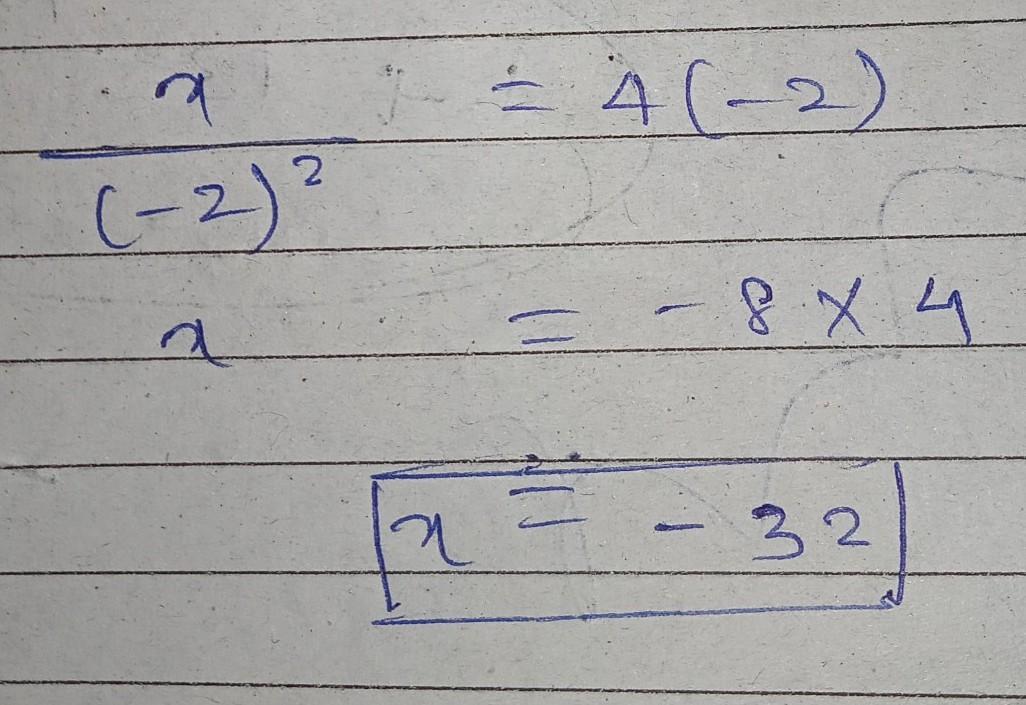 x/(-2)² = 4(-2)
x = -8 × 4
x = -32